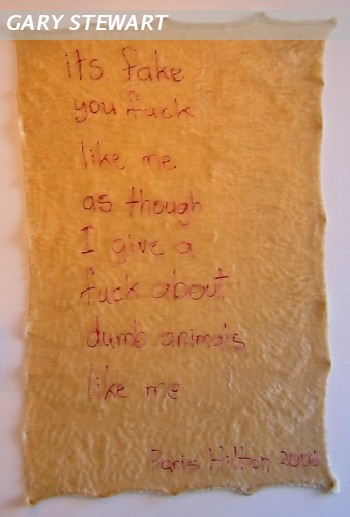 GARY STEWART
its fake
you fuck
like me.
as though
I give a
fuck about
dumb animals
like me
Paris Hilton 2006